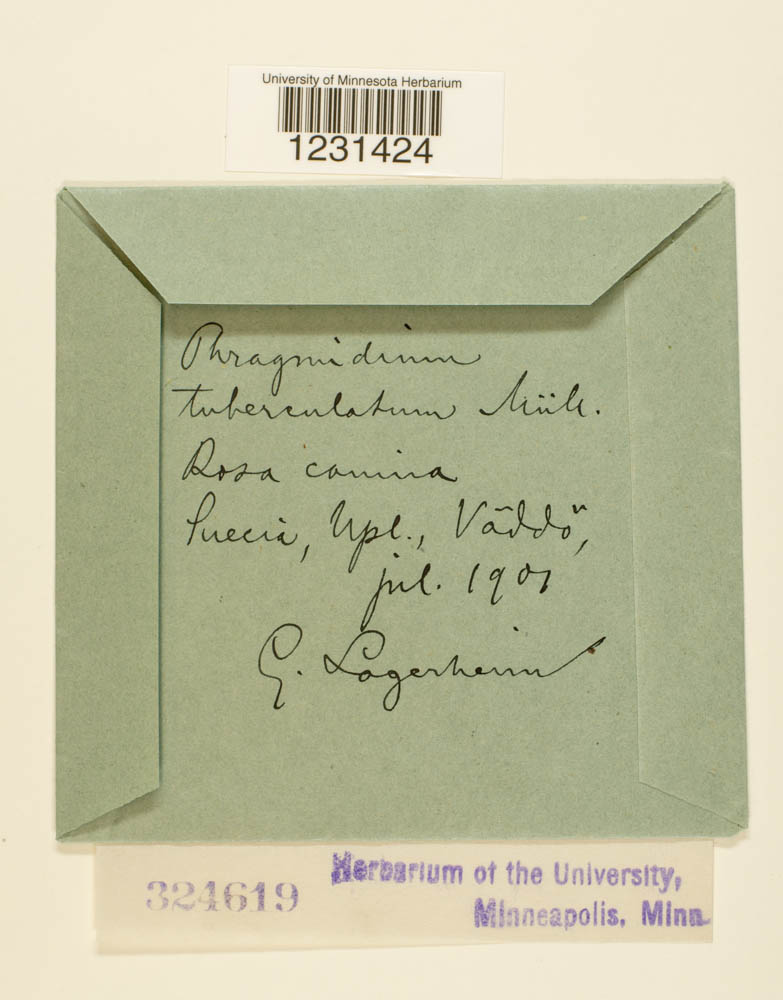 University of Minnesota Herbarium
1231424
Phragmidium
tuberculatum Müll.
Rosa canina
Suecia, Upl., Väddö,
jul. 1901
G. Lagerheim
324619
Herbarium of the University,
Minneapolis, Minn.